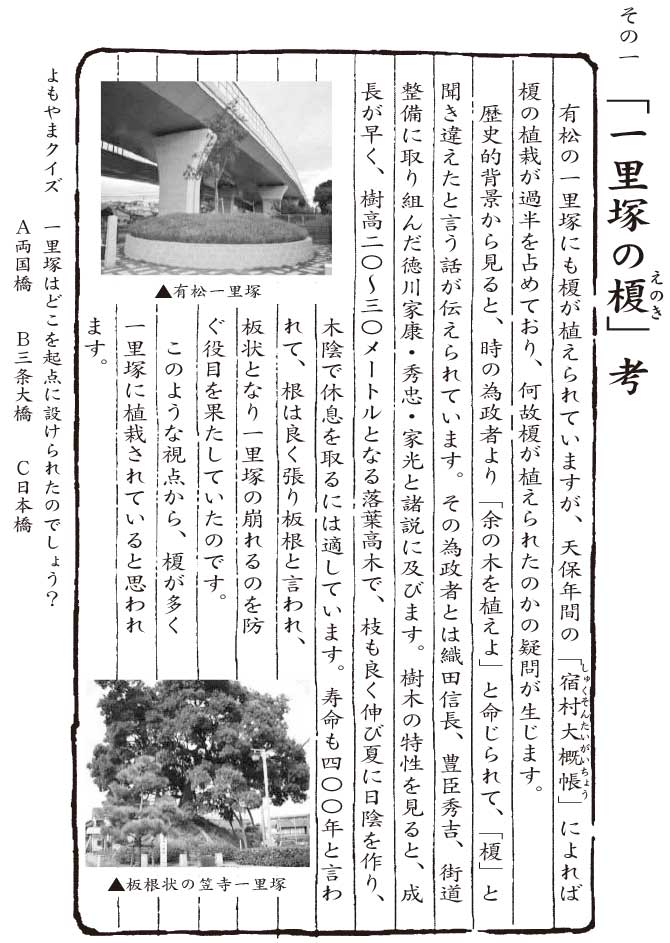 その一
「一里塚の榎」考
えのき
有松の一里塚にも榎が植えられていますが、天保年間の「宿村大概帳」によれば
しゅくそんたいがいちょう
榎の植栽が過半を占めており、何故榎が植えられたのかの疑問が生じます。
歴史的背景から見ると、時の為政者より「余の木を植えよ」と命じられて、「榎」と
聞き違えたと言う話が伝えられています。その為政者とは織田信長、豊臣秀吉、街道
整備に取り組んだ徳川家康・秀忠・家光と諸説に及びます。樹木の特性を見ると、成
長が早く、樹高二〇～三〇メートルとなる落葉高木で、枝も良く伸び夏に日陰を作り、
木陰で休息を取るには適しています。寿命も四〇〇年と言わ
れて、根は良く張り板根と言われ、
板状となり一里塚の崩れるのを防
ぐ役目を果たしていたのです。
このような視点から、榎が多く
一里塚に植栽されていると思われ
ます。
▲有松一里塚
▲板根状の笠寺一里塚
よもやまクイズ 一里塚はどこを起点に設けられたのでしょう？
A両国橋 B三条大橋 C日本橋